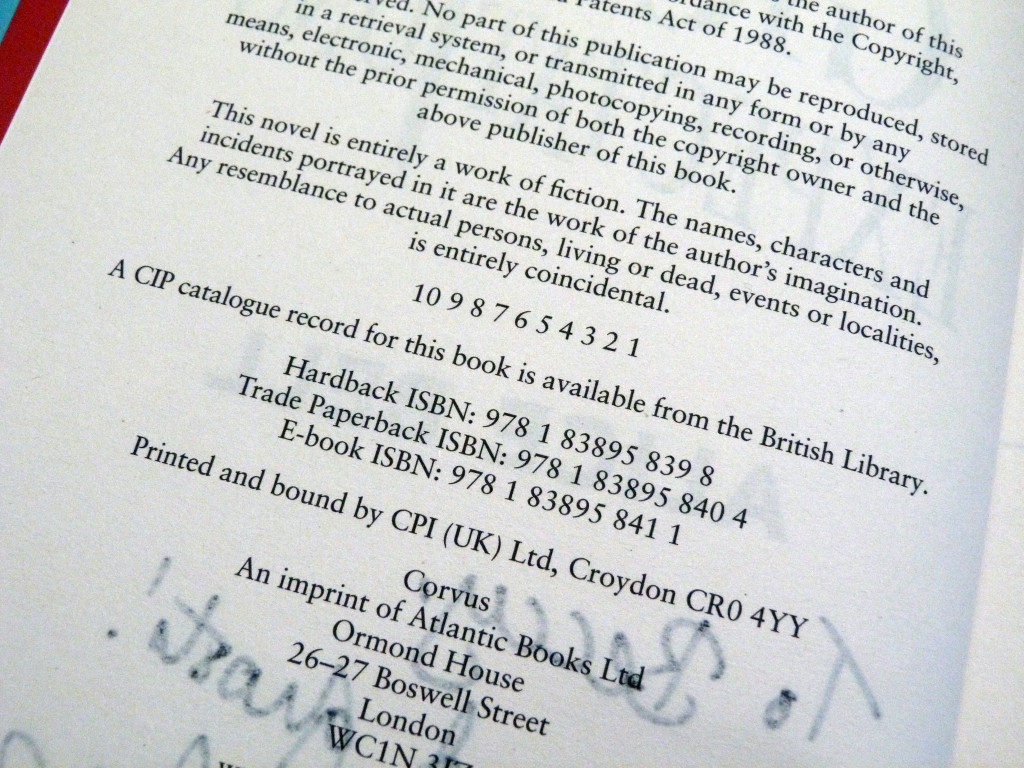 the author of this
rdance with the Copyright,
Patents Act of 1988.
No part of this publication may be reproduced, stored
in a retrieval system, or transmitted in any form or by any
means, electronic, mechanical, photocopying, recording, or otherwise,
without the prior permission of both the copyright owner and the
above publisher of this book.
This novel is entirely a work of fiction. The names, characters and
incidents portrayed in it are the work of the author's imagination.
Any resemblance to actual persons, living or dead, events or localities,
is entirely coincidental.
10 9 8 7 6 5 4 3 2 1
A CIP catalogue record for this book is available from the British Library.
Hardback ISBN: 978 1 83895 839 8
Trade Paperback ISBN: 978 1 83895 840 4
E-book ISBN: 978 1 83895 841 1
Printed and bound by CPI (UK) Ltd, Croydon CR0 4YY
Corvus
An imprint of Atlantic Books Ltd
Ormond House
26–27 Boswell Street
London
WC1N